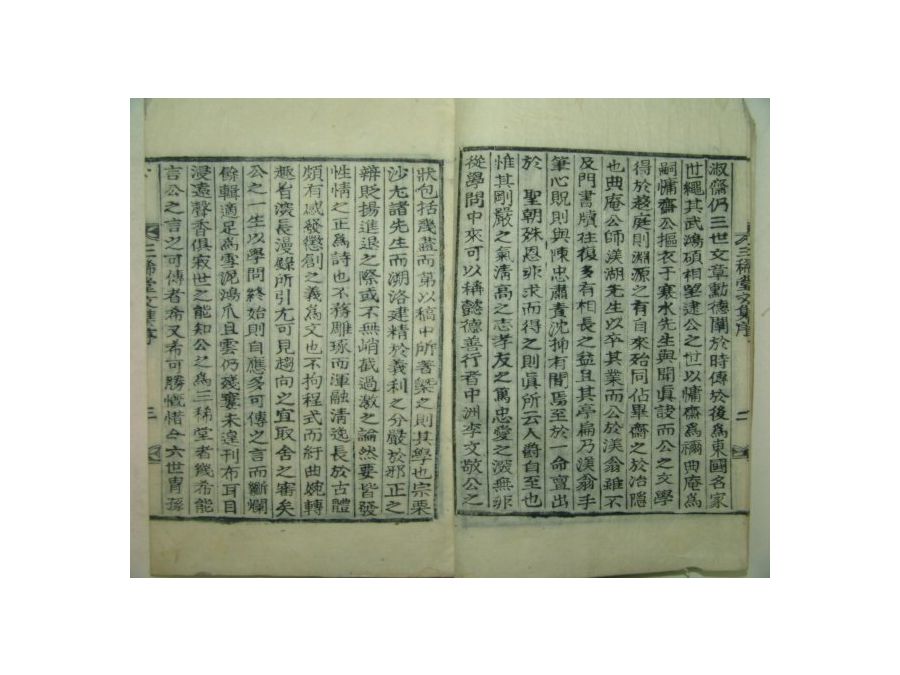 淑齋仍三世文章勳德闡於時傳於後爲東國名家
世繩其武鴻碩相望逮公之世以慵齋爲禰典庵爲
嗣慵齋公摳衣于寒水先生與聞眞詮而公之文學
得於趍庭則淵源之有自來殆同佔畢齋之於冶隱
也典庵公師渼湖先生以卒其業而公於渼翁雖不
及門書牘往復多有相長之益且其亭扁乃渼翁手
筆心貺則與陳忠肅責沈抑有間焉至於 命亶出
於 聖朝殊恩非求而得之則眞所云人爵自至也
惟其剛嚴之氣淸高之志孝友之篤忠愛之深無非
從學問中來可以稱懿德善行者中洲李文敬公之
狀包括幾盡而第以稿中所著槩之則其學也宗栗
沙尤諸先生而溯洛建精於義利之分嚴於邪正之
辨貶揚進退之際或不無峭截過激之論然要皆發
性情之正爲詩也不務雕琢而渾融淸逸長於古體
頗有感發懲創之義爲文也不拘程式而紆曲婉轉
趣旨深長漫錄所引尤可見趨向之宜取舍之審矣
公之一生以學問終始則自應多可傳之言而斷爛
餘輯適足爲雪泥鴻爪且雲仍殘蹇未遑刊布耳目
浸遠聲香俱寂世之能知公之爲三稀堂者幾希能
言公之言之可傳者希又希可勝慨惜女六世胄孫
三稀堂文集序
二
三稀堂文集序
二